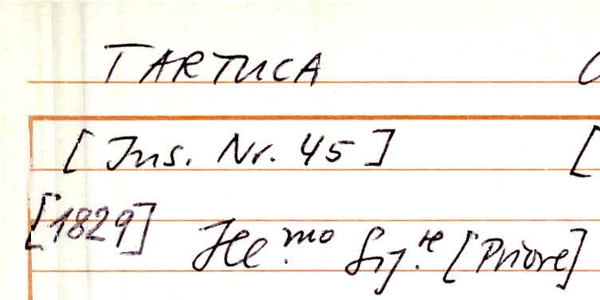 TARTUCA
[Ins. Nr. 45] [
[1829] Ill.mo Sig.re [Priore]